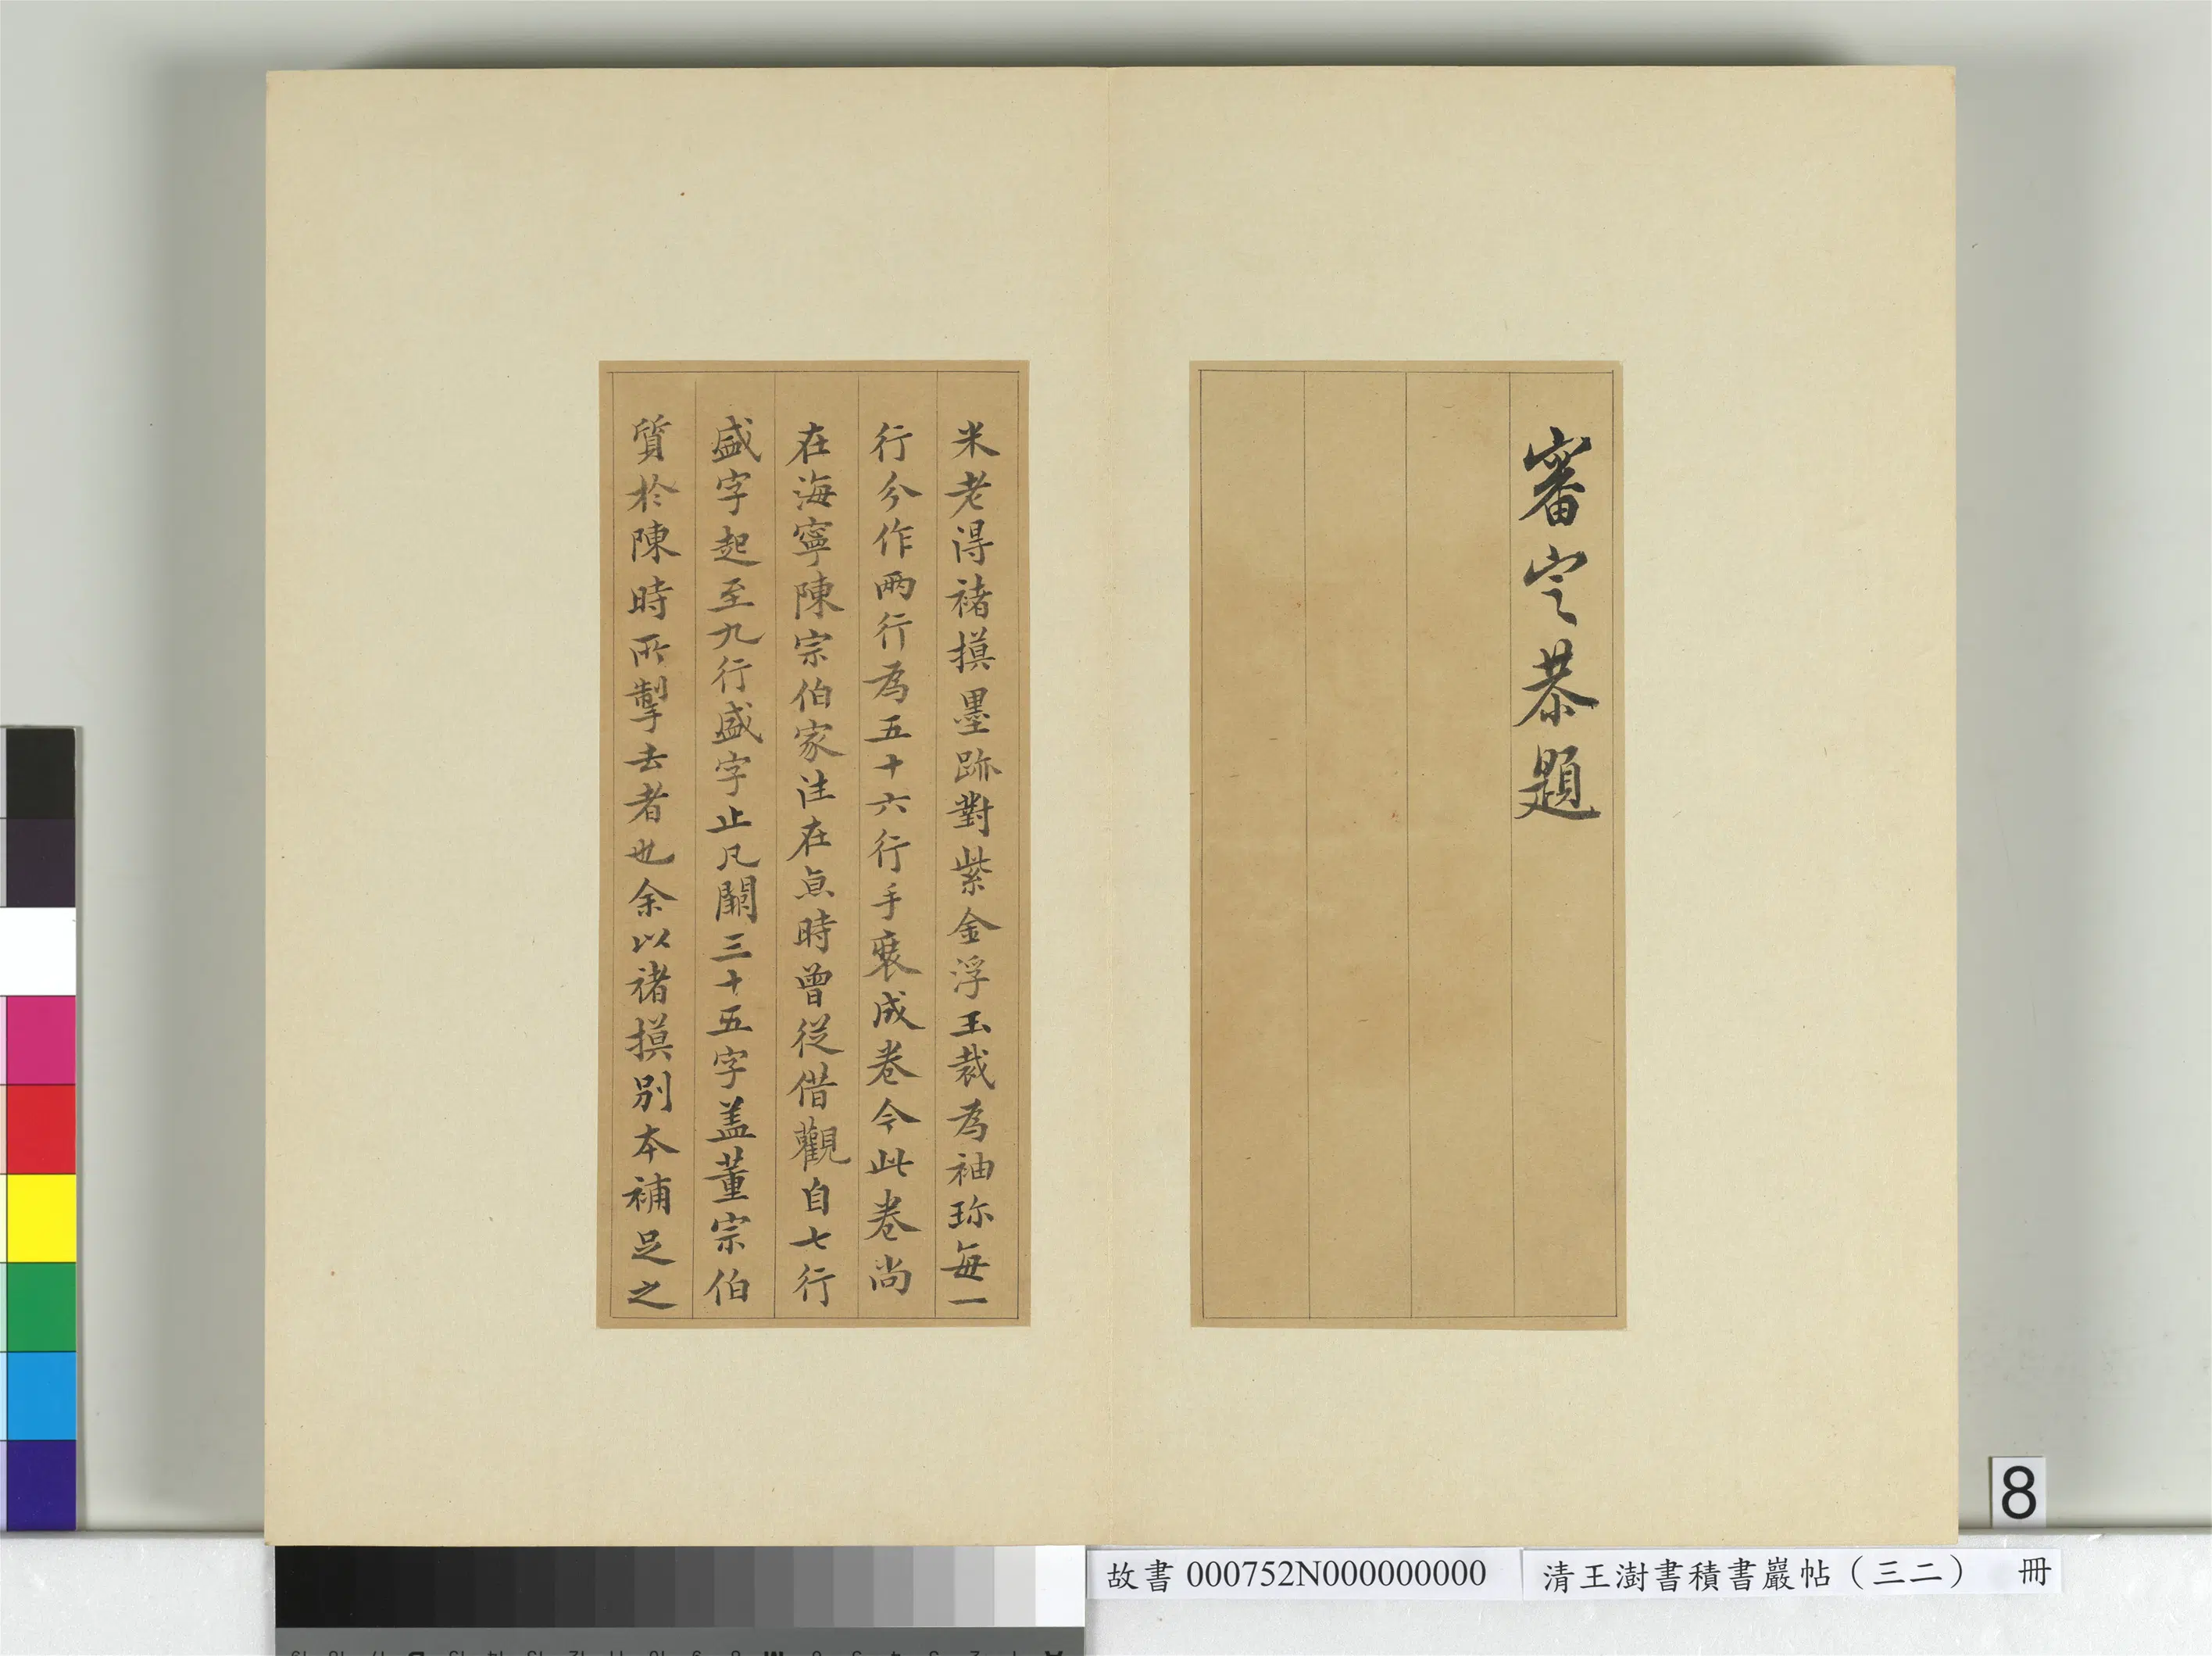 審定恭題
米老得褚摸墨跡對紫金浮玉裁為袖珎每一
行分作兩行為五十六行手裝成卷今此卷尚
在海寧陳宗伯家往在京時曾從借觀自七行
盛字起至九行盛字止凡闕三十五字盖董宗伯
質於陳時所掣去者也余以褚摸別本補足之
8
故書 000752N000000000
清王澍書積書巖帖（三二） 冊